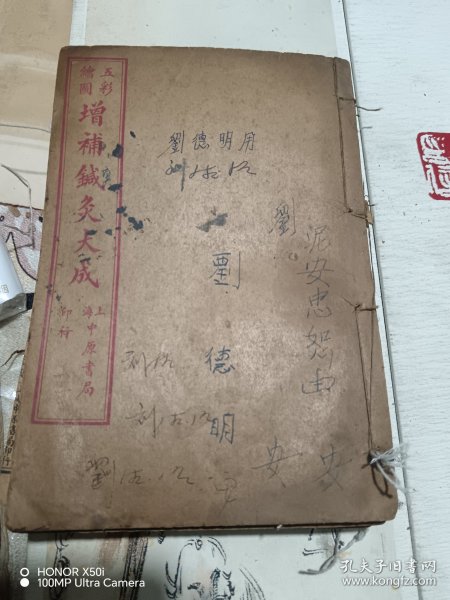 五彩
繪圖
增補鍼灸大成
上海中原書局
印行
劉德明用
劉德明
劉
泥安忠恕由
安
安
劉
HONOR X50i
100MP Ultra Camera
孔夫子旧书网
kongfz.com